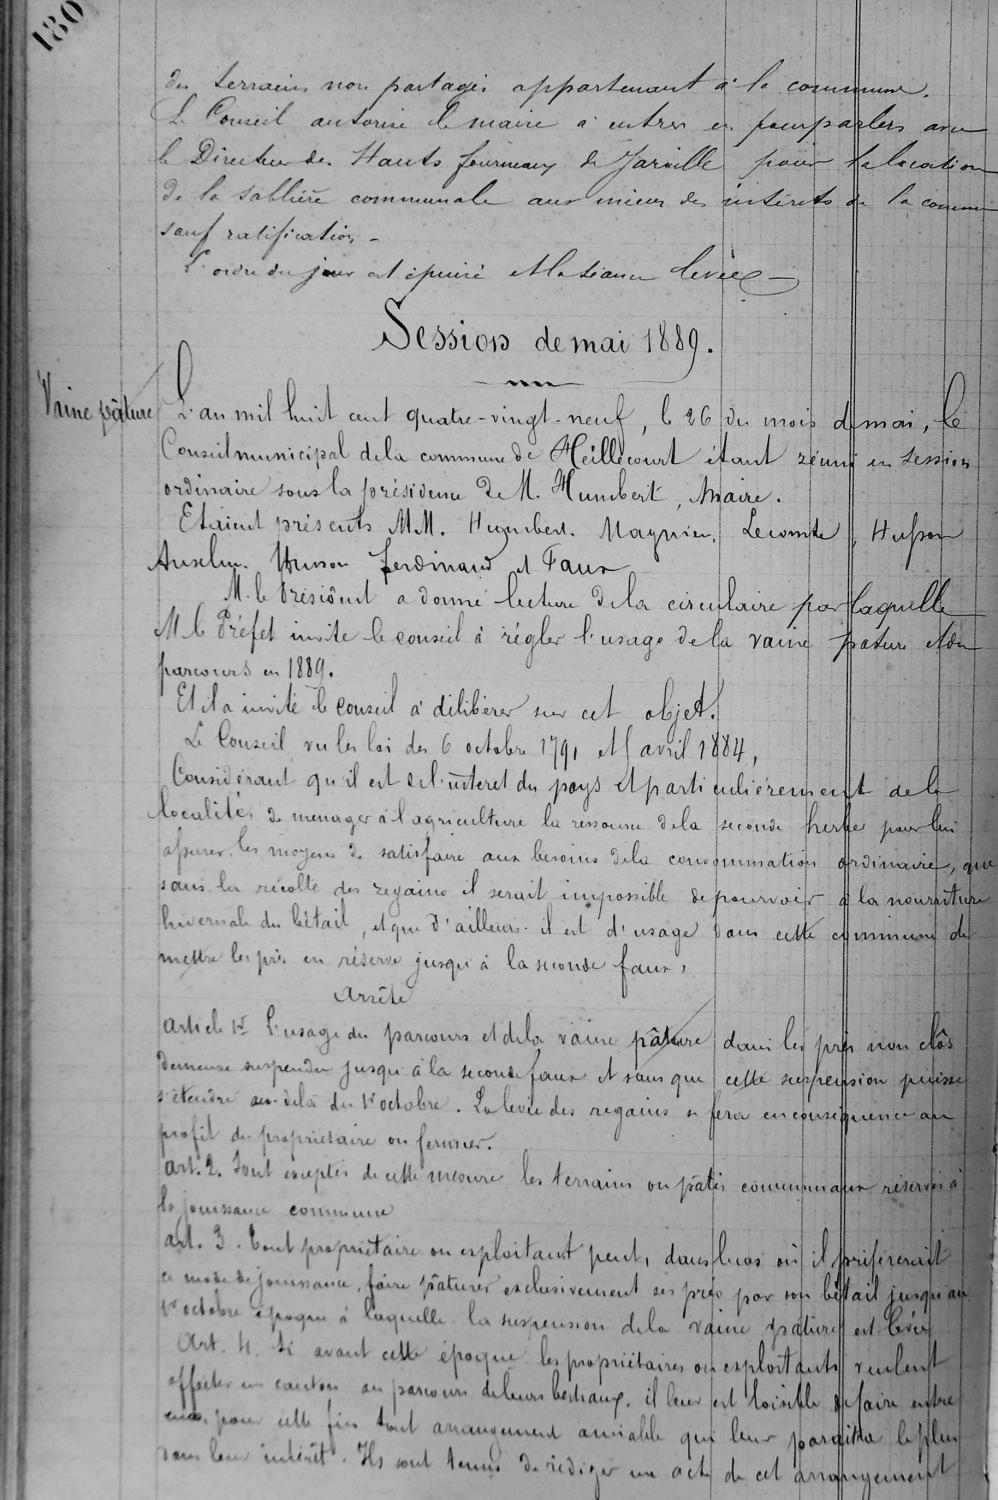 180
des terrains non partagés appartenant à la commune.
Le Conseil autorise le maire à entrer en pourparlers avec
le Directeur des Hauts fourneaux de Jarville pour la location
de la sablière communale aux mieux des intérêts de la commune
sauf ratification -
L'ordre du jour est épuisé et la séance levée
Session de mai 1889.
Vaine pâture
L'an mil huit cent quatre-vingt-neuf, le 26 du mois de mai, le
Conseil municipal de la commune de Heillecourt étant réuni en session
ordinaire sous la présidence de M. Humbert, Maire.
Etaient présents MM. Humbert, Magnien, Lecomte, Husson
Anselme. Husson Ferdinand et Faux
M. le Président a donné lecture de la circulaire par laquelle
M le Préfet invite le conseil à régler l'usage de la vaine pature et du
parcours en 1889.
Et il a invité le conseil à délibérer sur cet objet.
Le Conseil vu les loi des 6 octobre 1791 et 5 avril 1884,
Considérant qu'il est de l'intéret du pays et particulièrement de la
localité, de menager à l'agriculture la ressource de la seconde herbe pour lui
assurer les moyens de satisfaire aux besoins de la consommation ordinaire, que
sans la récolte des regains il serait impossible de pourvoir à la nourriture
hivernale du bétail, et que d'ailleurs il est d'usage dans cette commune de
mettre les prés en réserve jusqu'à la seconde faux,
Arrête
Article 1er L'usage du parcours et de la vaine pâture dans les prés non clôs
demeure suspendu jusqu'à la seconde faux et sans que cette suspension puisse
s'étendre au-delà du 1er octobre. La levée des regains se fera en conséquence au
profit du propriétaire ou fermier.
Art. 2. Sont exceptés de cette mesure les terrains ou pâtis communaux réservés à
la jouissance commune
Art. 3. Tout propriétaire ou exploitant peut, dans le cas où il préférerait
ce mode de jouissance, faire pâturer exclusivement ses prés par son bétail jusqu'au
1er octobre époque à laquelle la suspension de la vaine pature est levée
Art. 4. Si avant cette époque les propriétaires ou exploitants veulent
affecter un canton au parcours de leurs bestiaux, il leur est loisible de faire entre
eux, pour cette fin tout arrangement amiable qui leur paraîtra le plus
dans leur intérêt. Ils sont tenus de rédiger un acte de cet arrangement